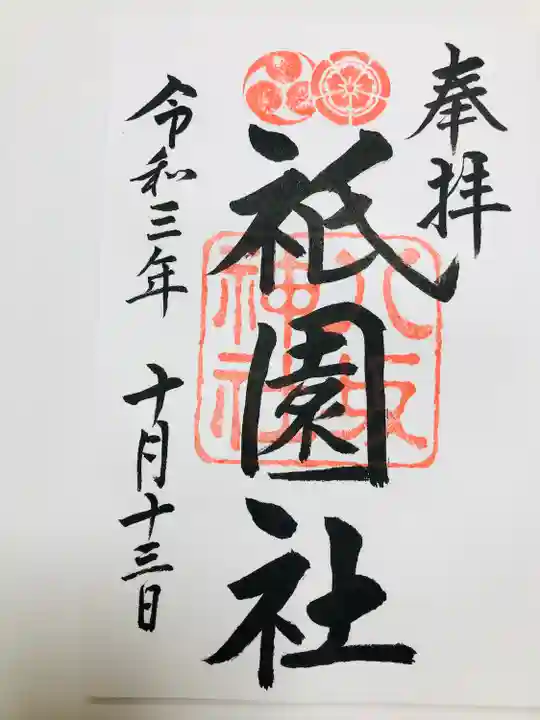 奉拝
祇園社
八坂
神社
令和三年 十月十三日